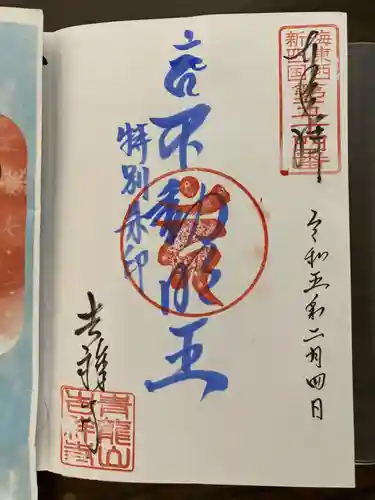 奉拝
海東西
新四国
令和五年二月四日
不動明王
特別朱印
吉祥寺
青龍山
吉祥寺